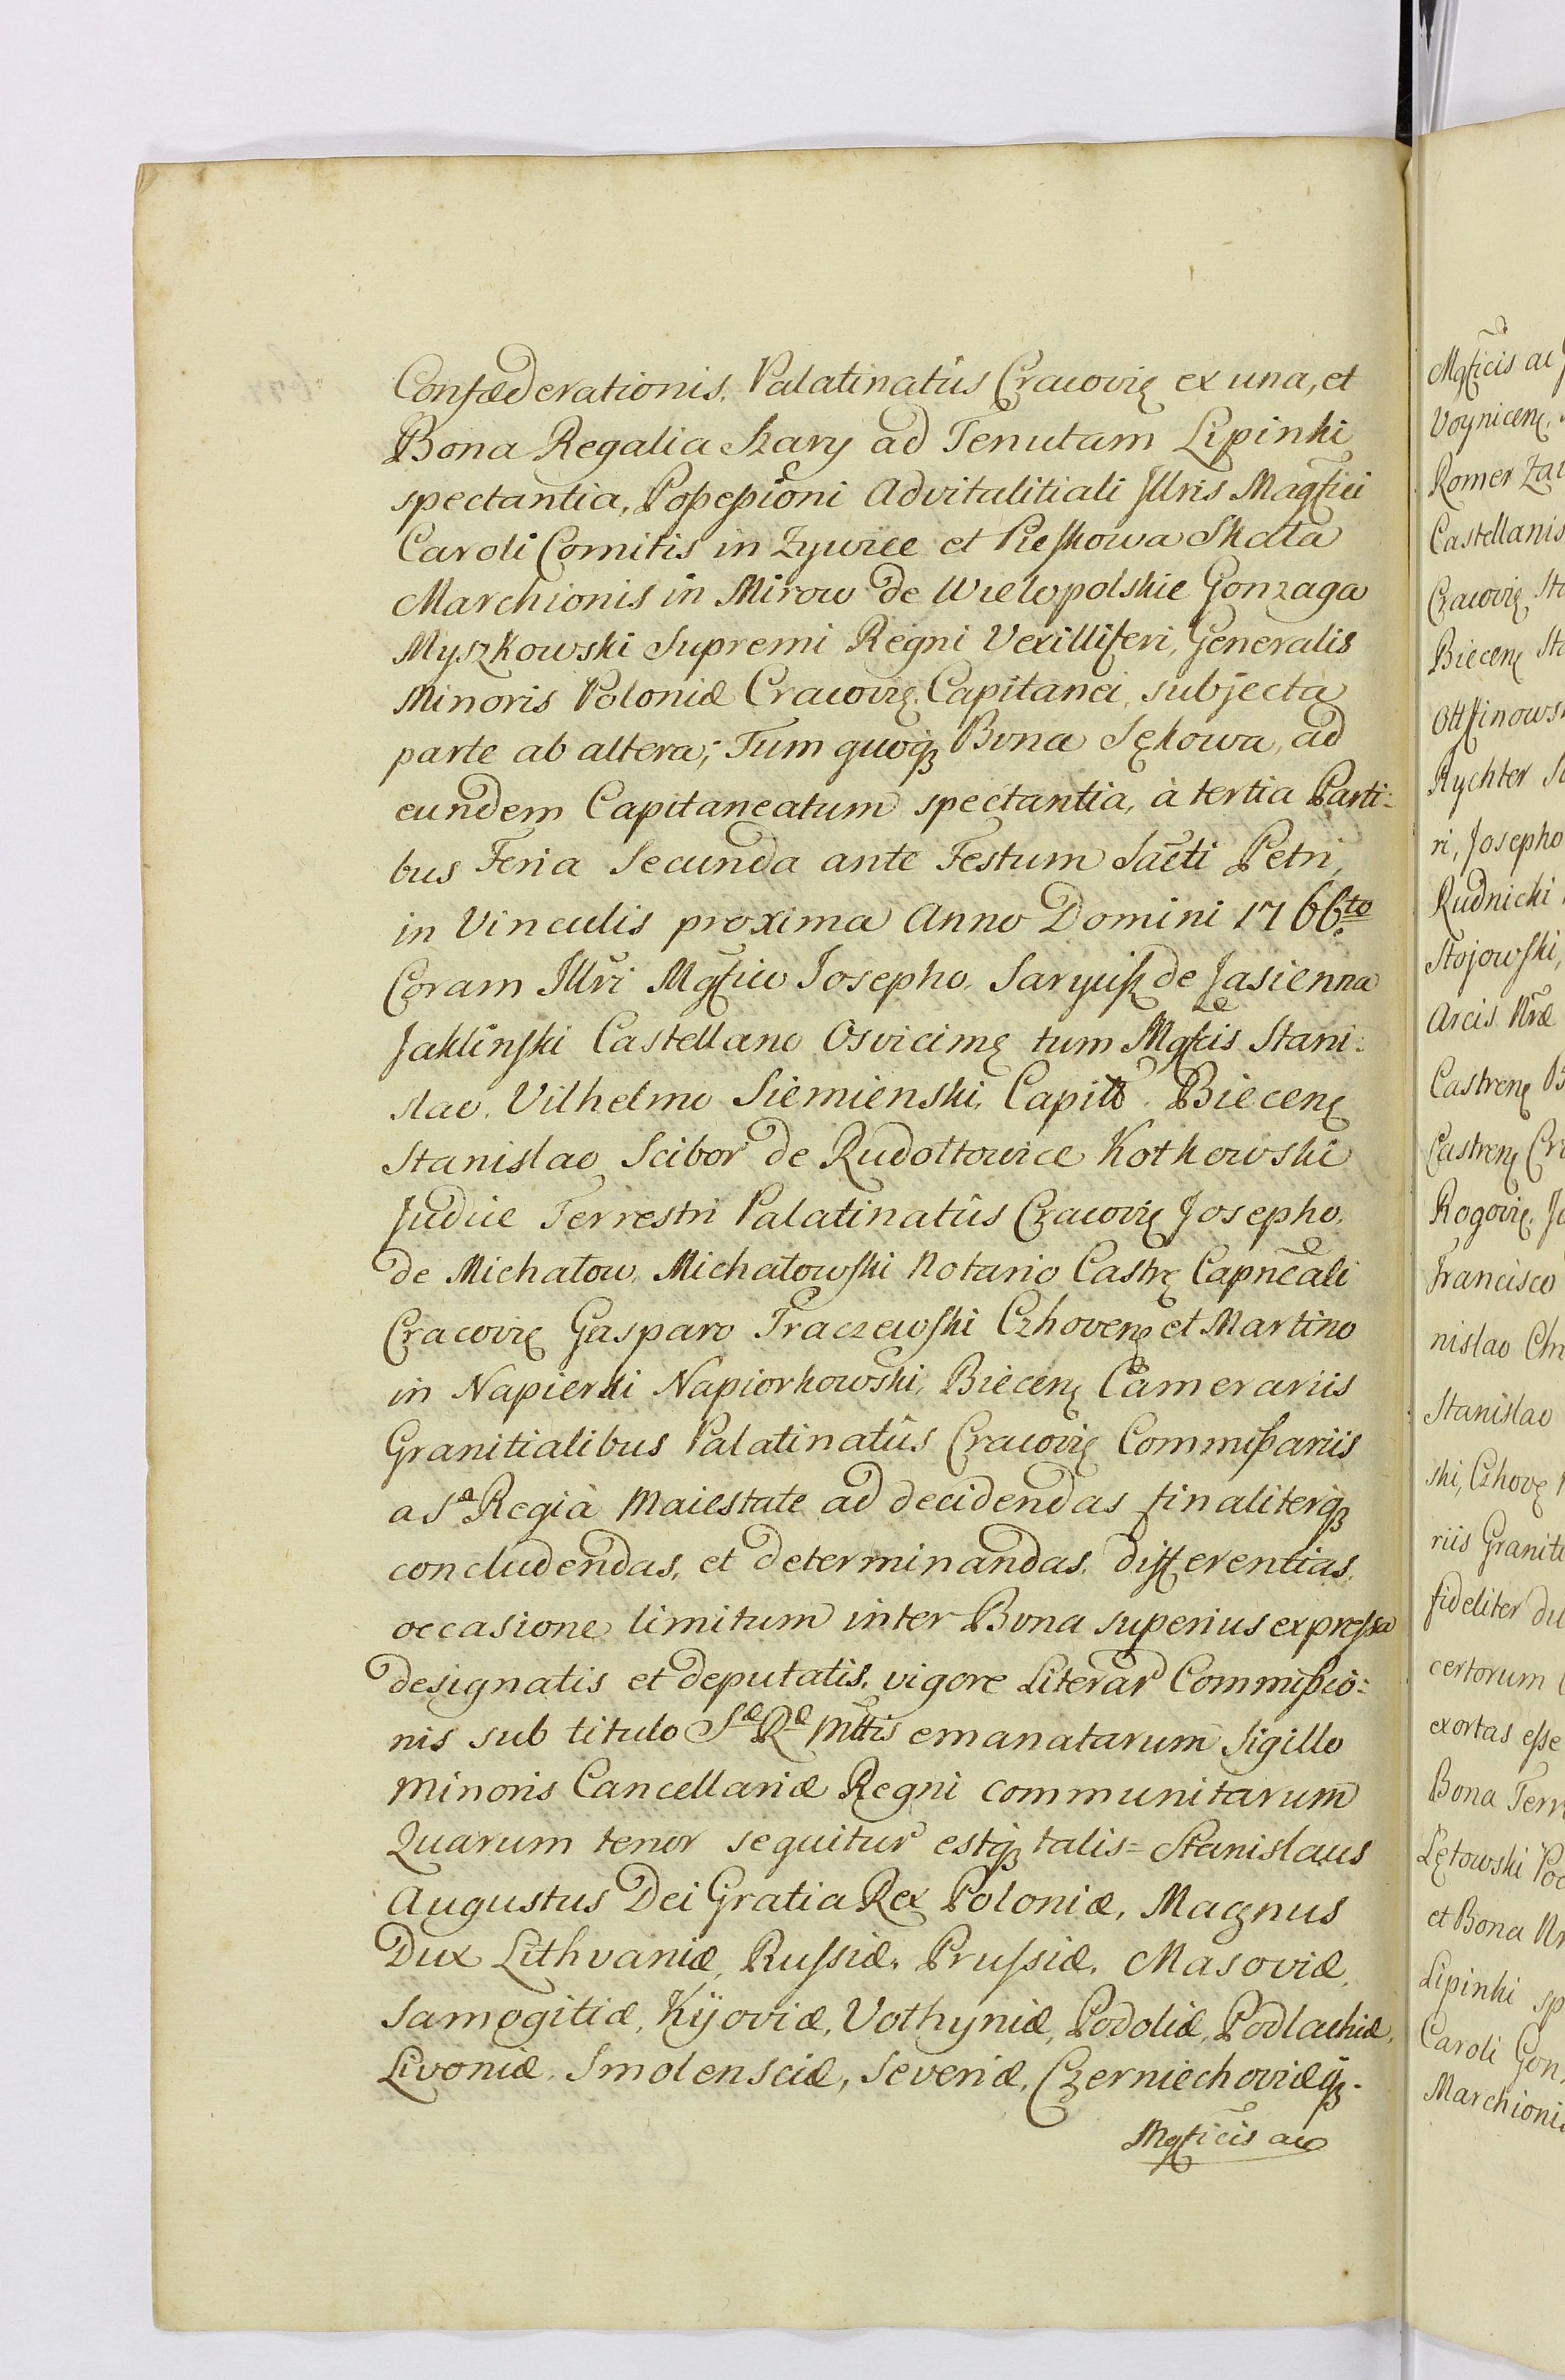 Confæderationis, Palatinatûs Cracovię ex una, et
Bona Regalia Szary ad Tenutam Lipinki
spectantia, Possessioni Advitalitiali Illris Magfici
Caroli Comitis in Zywiec et Pieskowa Skała
Marchionis in Mirow de Wielopolskie Gonzaga
Myszkowski Supremi Regni Vexilliferi, Generalis
Minoris Poloniæ Cracovię Capitanei, subjecta
parte ab altera; Tum quoqꝫ Bona Sękowa, ad
eundem Capitaneatum spectantia, à tertia Parti=
bus Feria Secunda ante Festum Sãcti Petri,
in Vinculis proxima Anno Domini 1766to
Coram Illri Mgfico Josepho Saryusz de Jasienna
Jaklinski Castellano Osvicimę tum Mgfcis Stani=
slao Vilhelmo Siemienski, Capitõ Biecenę
Stanislao Scibor de Rudołtowice Kotkowski
Judice Terrestri Palatinatûs Cracovię Josepho
de Michałow Michałowski Notario Castrę Capnẽali
Cracovię Gasparo Traczewski Czhovenę et Martino
in Napierki Napiorkowski, Biecenę Camerariis
Granitialibus Palatinatûs Cracovię Commissariis
a Sa Regià Maiestate ad decidendas finaliterqꝫ
concludendas, et determinandas differentias
occasione limitum inter Bona superius expressa
designatis et deputatis, vigore Literar Commissio=
nis sub titulo Sæ Ræ Mttis emanatarum Sigillo
Minoris Cancellariæ Regni communitarum
Quarum tenor sequitur estqꝫ talis = Stanislaus
Augustus Dei Gratia Rex Poloniæ, Magnus
Dux Lithvaniæ, Russiæ, Prussiæ, Masoviæ,
Samogitiæ, Kijoviæ, Vołhyniæ, Podoliæ, Podlachiæ,
Livoniæ, Smolensciæ, Severiæ, Czerniechoviæqꝫ.
Mgficis ac
Mgficis ac
Voynicenę,
Romer
Castellanis
Cracovię
Biecenę
Rychter
ri, Josepho
Rudnicki
Stojowski,
Arcis Nræ
Castrenę
Castrenę
Rogovię
Francisco
nislao
Stanislao
ski, Czhovę
riis
fideliter
certorum
exortas esse
Bona
Lętowski
et Bona
Lipinki
Caroli